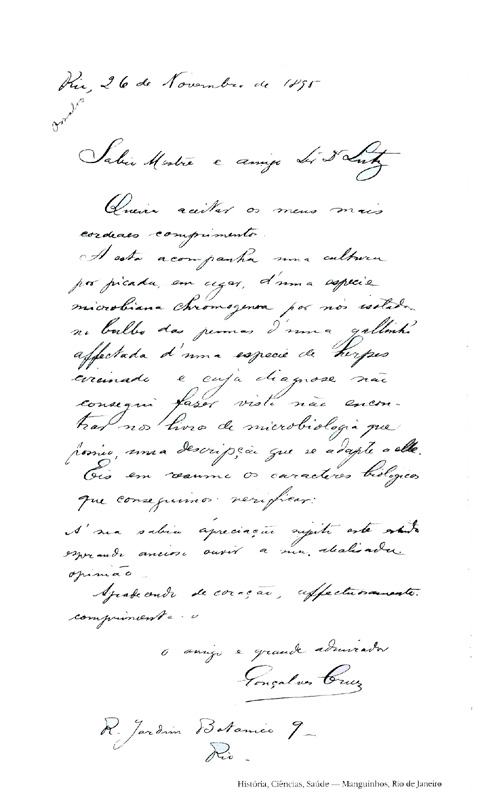 Rio, 26 de Novembro de 1895
Sabio Mestre e amigo Sr. Dr Lutz
Queira aceitar os meus mais
cordiaes comprimentos.
A esta acompanha uma cultura
por picada, em agar, d'uma especie
microbiana chromogenea por nós isolada
no bulbo das pennas d'uma gallinha
affectada d'uma especie de herpes
circinado e cuja diagnose não
consegui fazer visto não encon-
trar nos livros de microbiologia que
possuo, uma descripção que se adapte a elle.
Eis em resumo os caracteres biologicos
que conseguimos verificar:
A' sua sabia apreciação sujeito este estudo
esperando ancioso ouvir a sua abalisada
opinião.
Agradecendo de coração, affectuosamente
comprimenta-o
o amigo e grande admirador
Gonçalves Cruz
R. Jardim Botanico 9
Rio.
História, Ciências, Saúde — Manguinhos, Rio de Janeiro